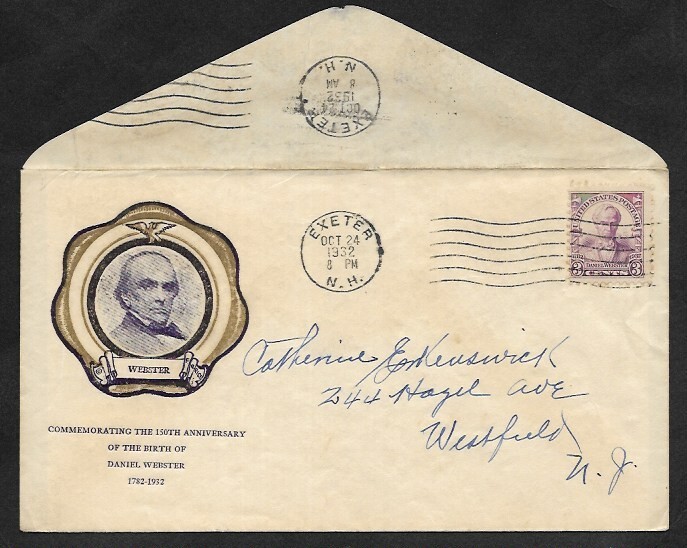 EXETER
OCT 24
1932
8 AM
N.H.
EXETER
OCT 24
1932
8 PM
N.H.
UNITED STATES POSTAGE
1782 1932
DANIEL WEBSTER
3 CENTS 3
WEBSTER
COMMEMORATING THE 150TH ANNIVERSARY
OF THE BIRTH OF
DANIEL WEBSTER
1782-1932
Catherine
244 Hazel Ave
Westfield
N. J.